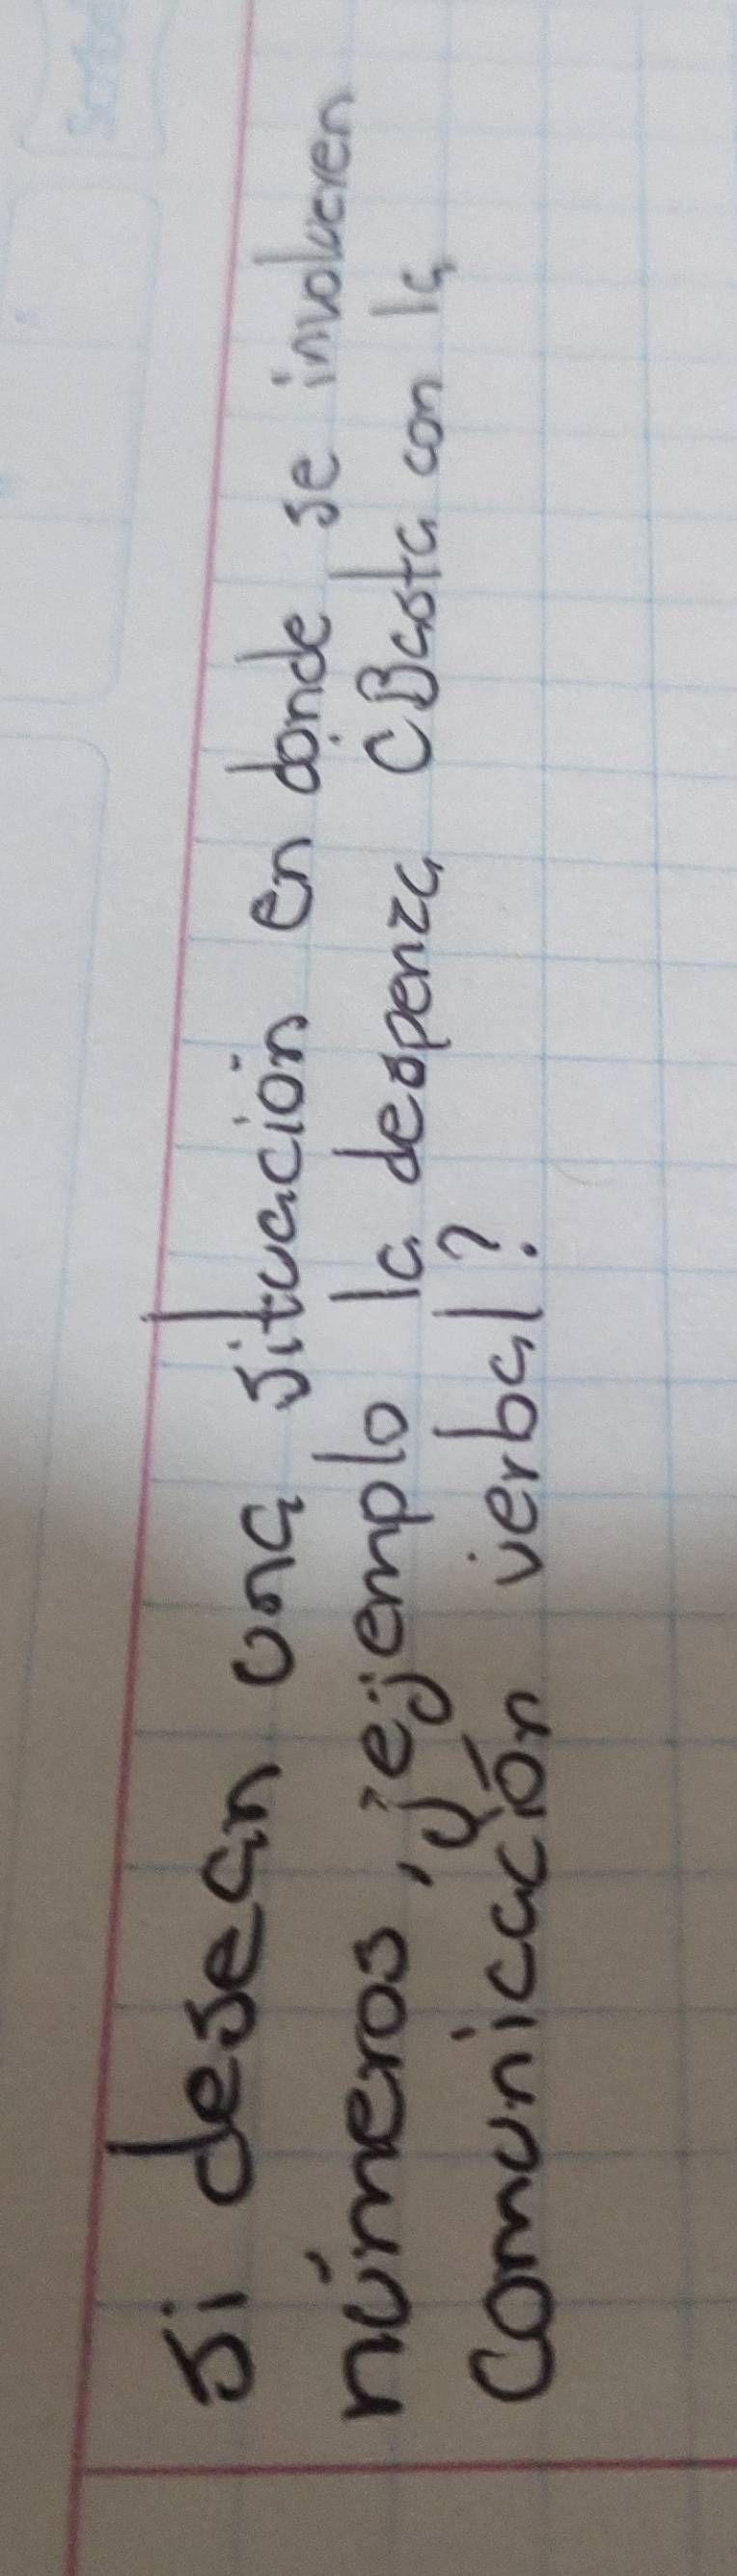 si desean una situación en donde se involucren
números, ejemplo la despenza ¿Basta con la
comunicación verbal?